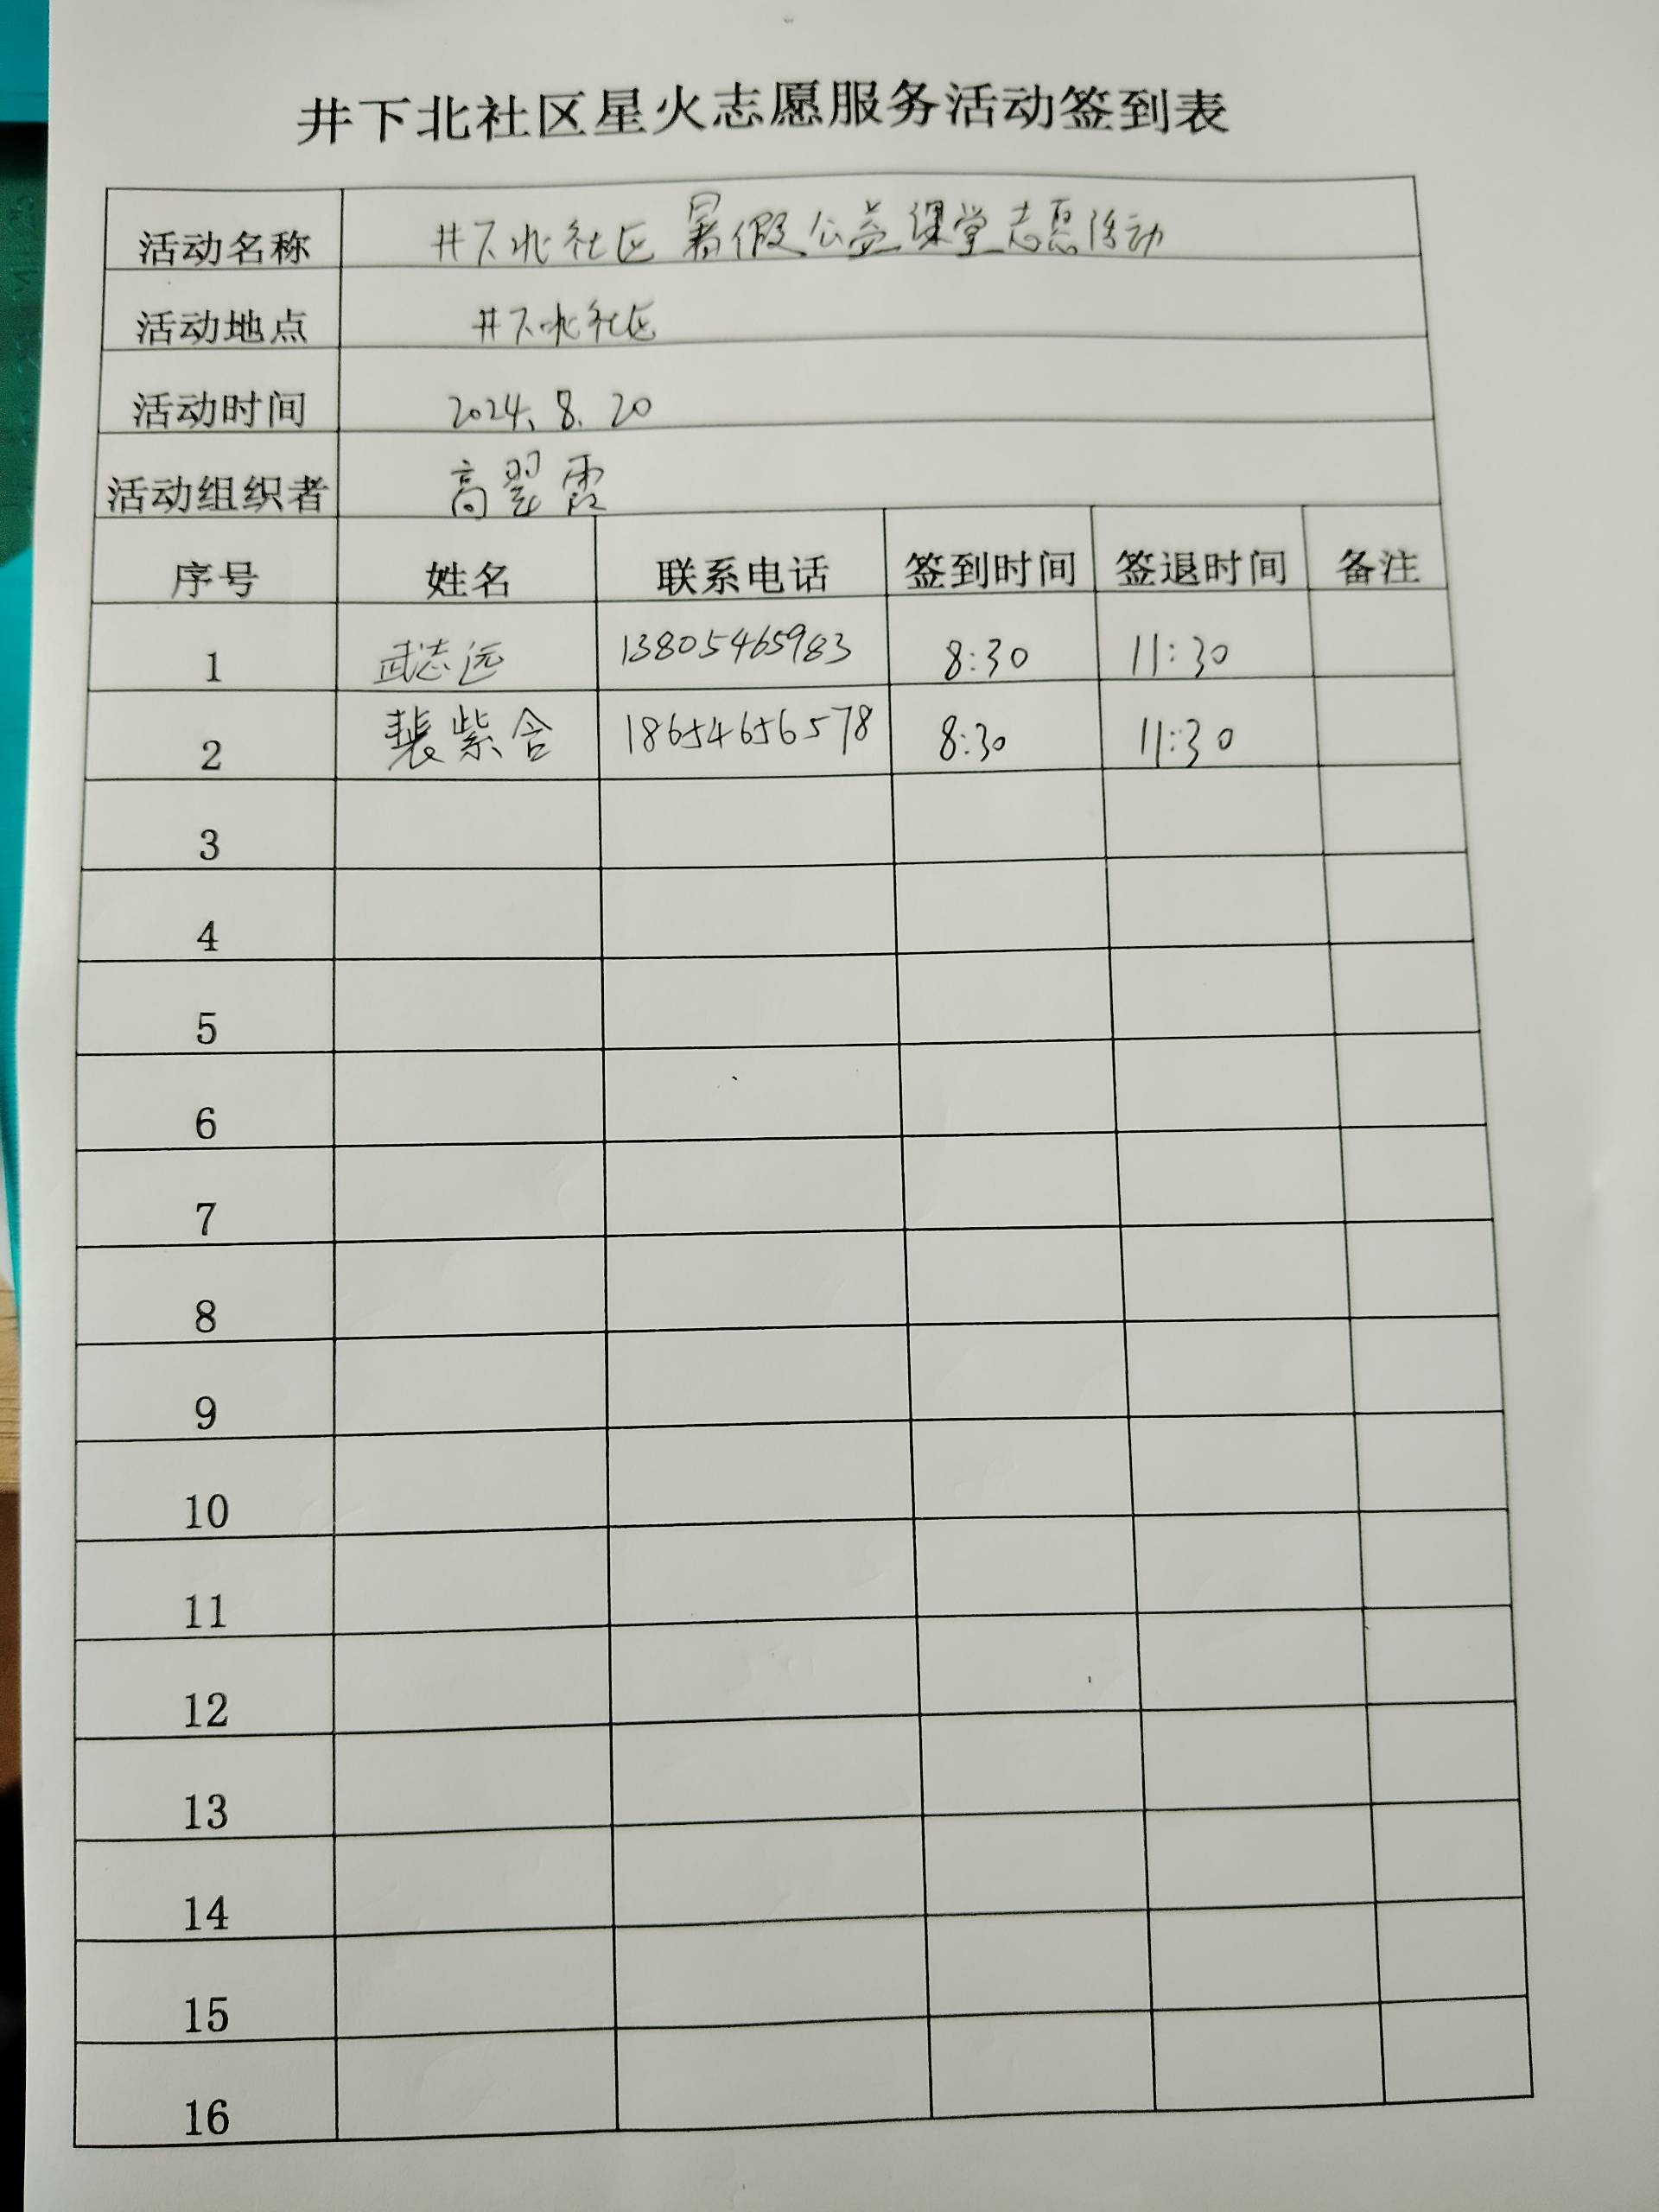 井下北社区星火志愿服务活动签到表
活动名称 井下北社区暑假公益课堂志愿活动
活动地点 井下北社区
活动时间 2024.8.20
活动组织者 高翠霞
序号 姓名 联系电话 签到时间 签退时间 备注
1 武志远 13805465983 8:30 11:30
2 裴紫含 18654656578 8:30 11:30
3
4
5
6
7
8
9
10
11
12
13
14
15
16